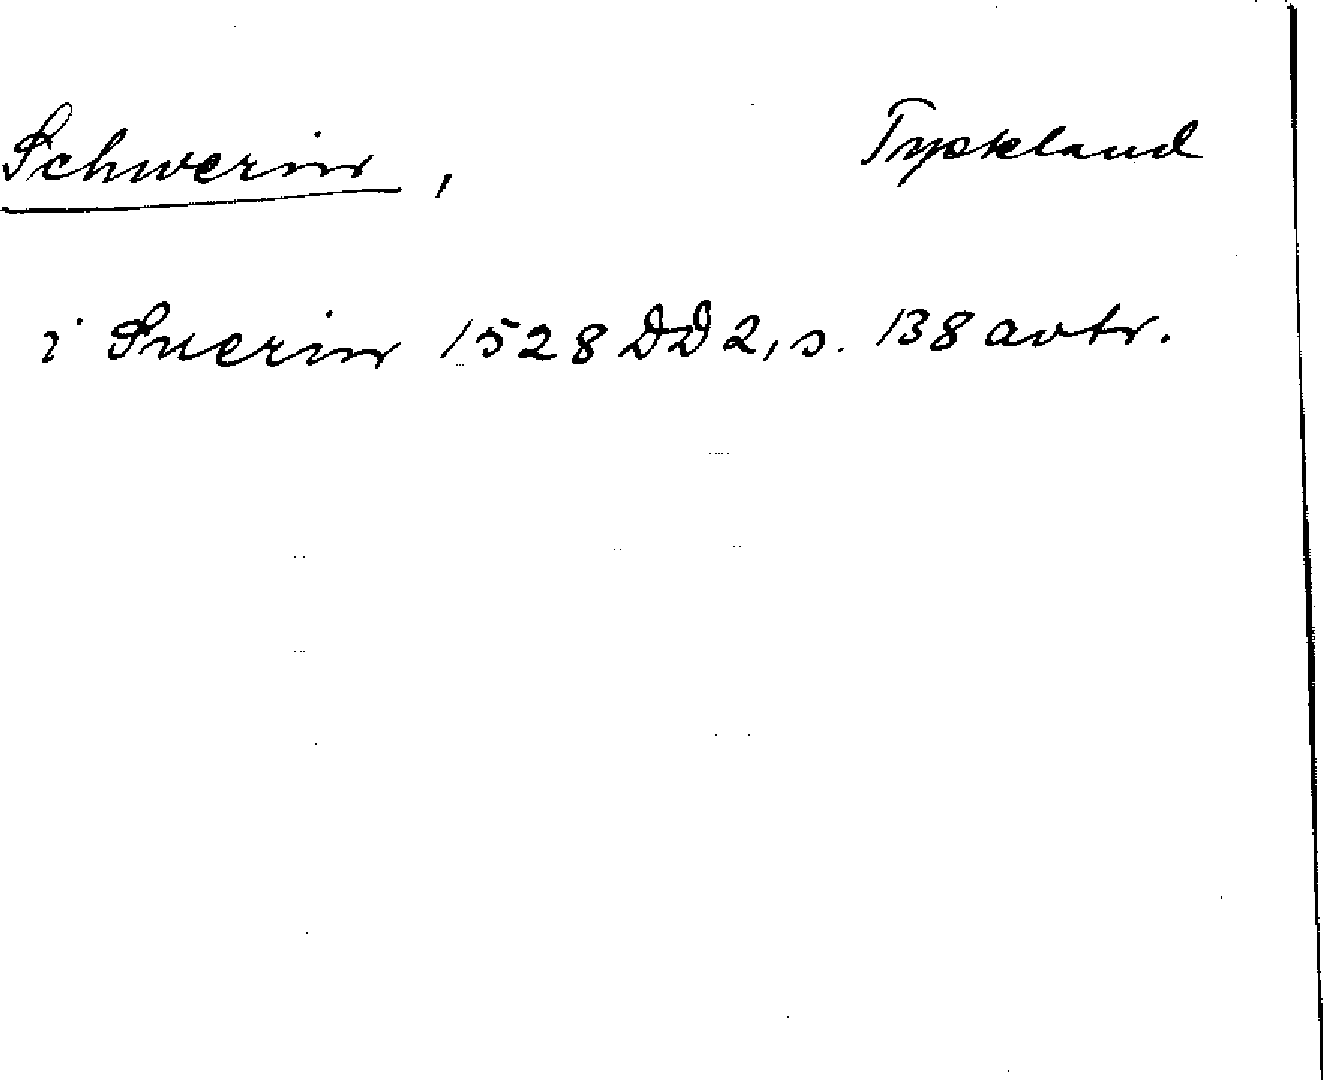 Schwerin, Tyskland
i Suerin 1528 DD2, s. 138 avtr.